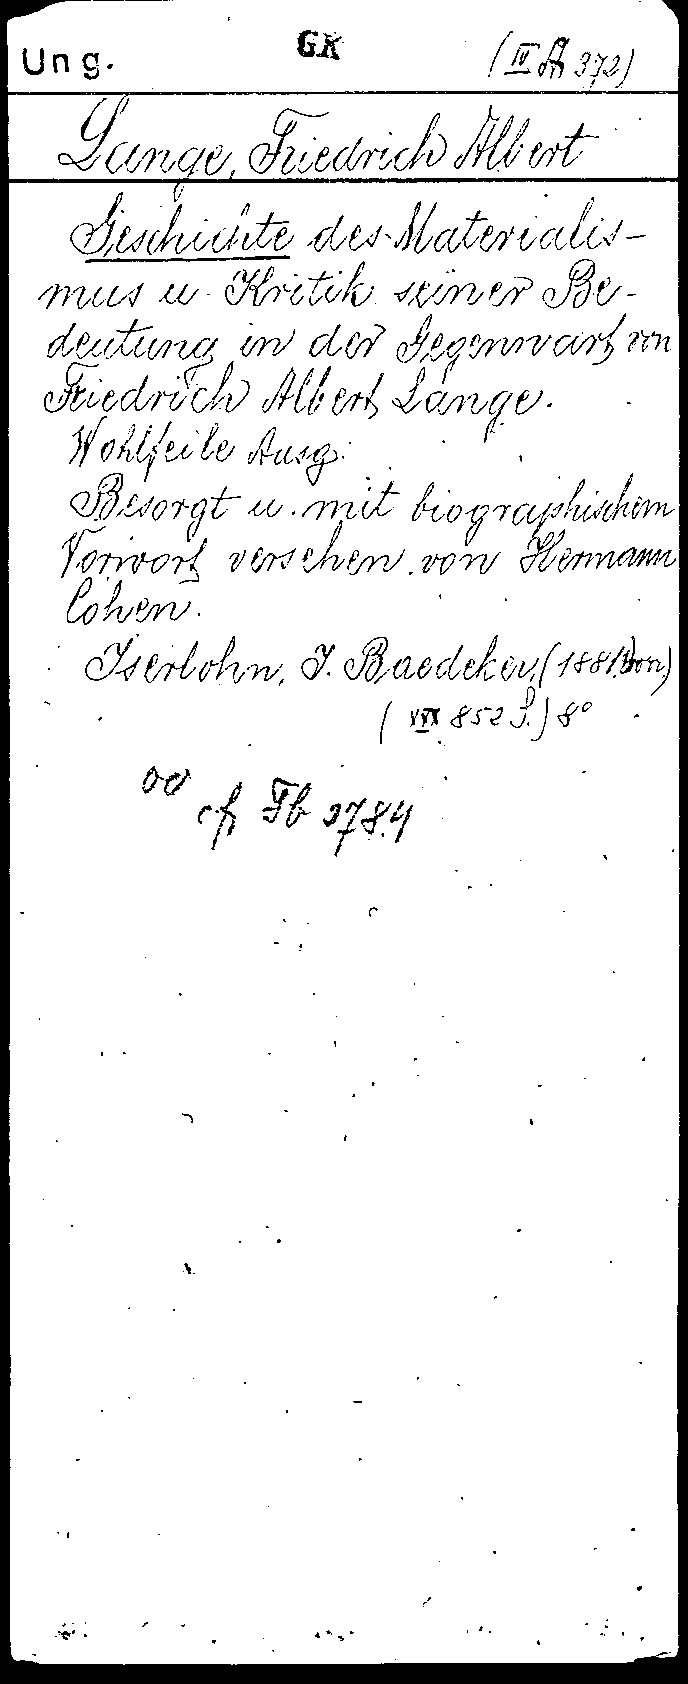 Ung. GK (IV A 372)
Lange, Friedrich Albert
Geschichte des Materialis-
mus u. Kritik seiner Be-
deutung in der Gegenwart von
Friedrich Albert Lange.
Wohlfeile Ausg.
Besorgt u. mit biographischem
Vorwort versehen von Hermann
Cohen.
Iserlohn, J. Baedeker, (1881
852 S.) 8°
cf Fb 2784